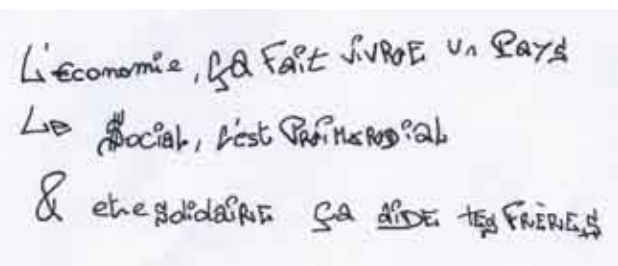 L'économie, ça Fait VIVRE Un Pays
Le Social, c'est PRIMORDial
& etre solidaiRE ça aIDE tes FRÈRES